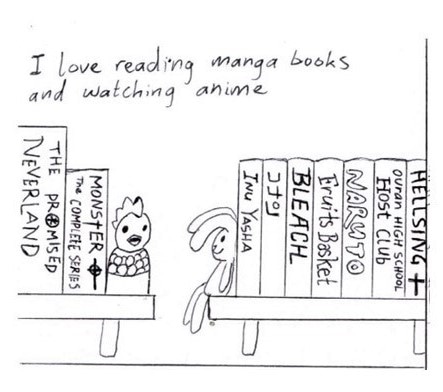 I love reading manga books
and watching anime
THE PROMISED
NEVERLAND
MONSTER
The COMPLETE SERIES
INU YASHA
BLEACH
Fruits Basket
NARUTO
OURAN HIGH SCHOOL
HOST CLUB
HELLSING